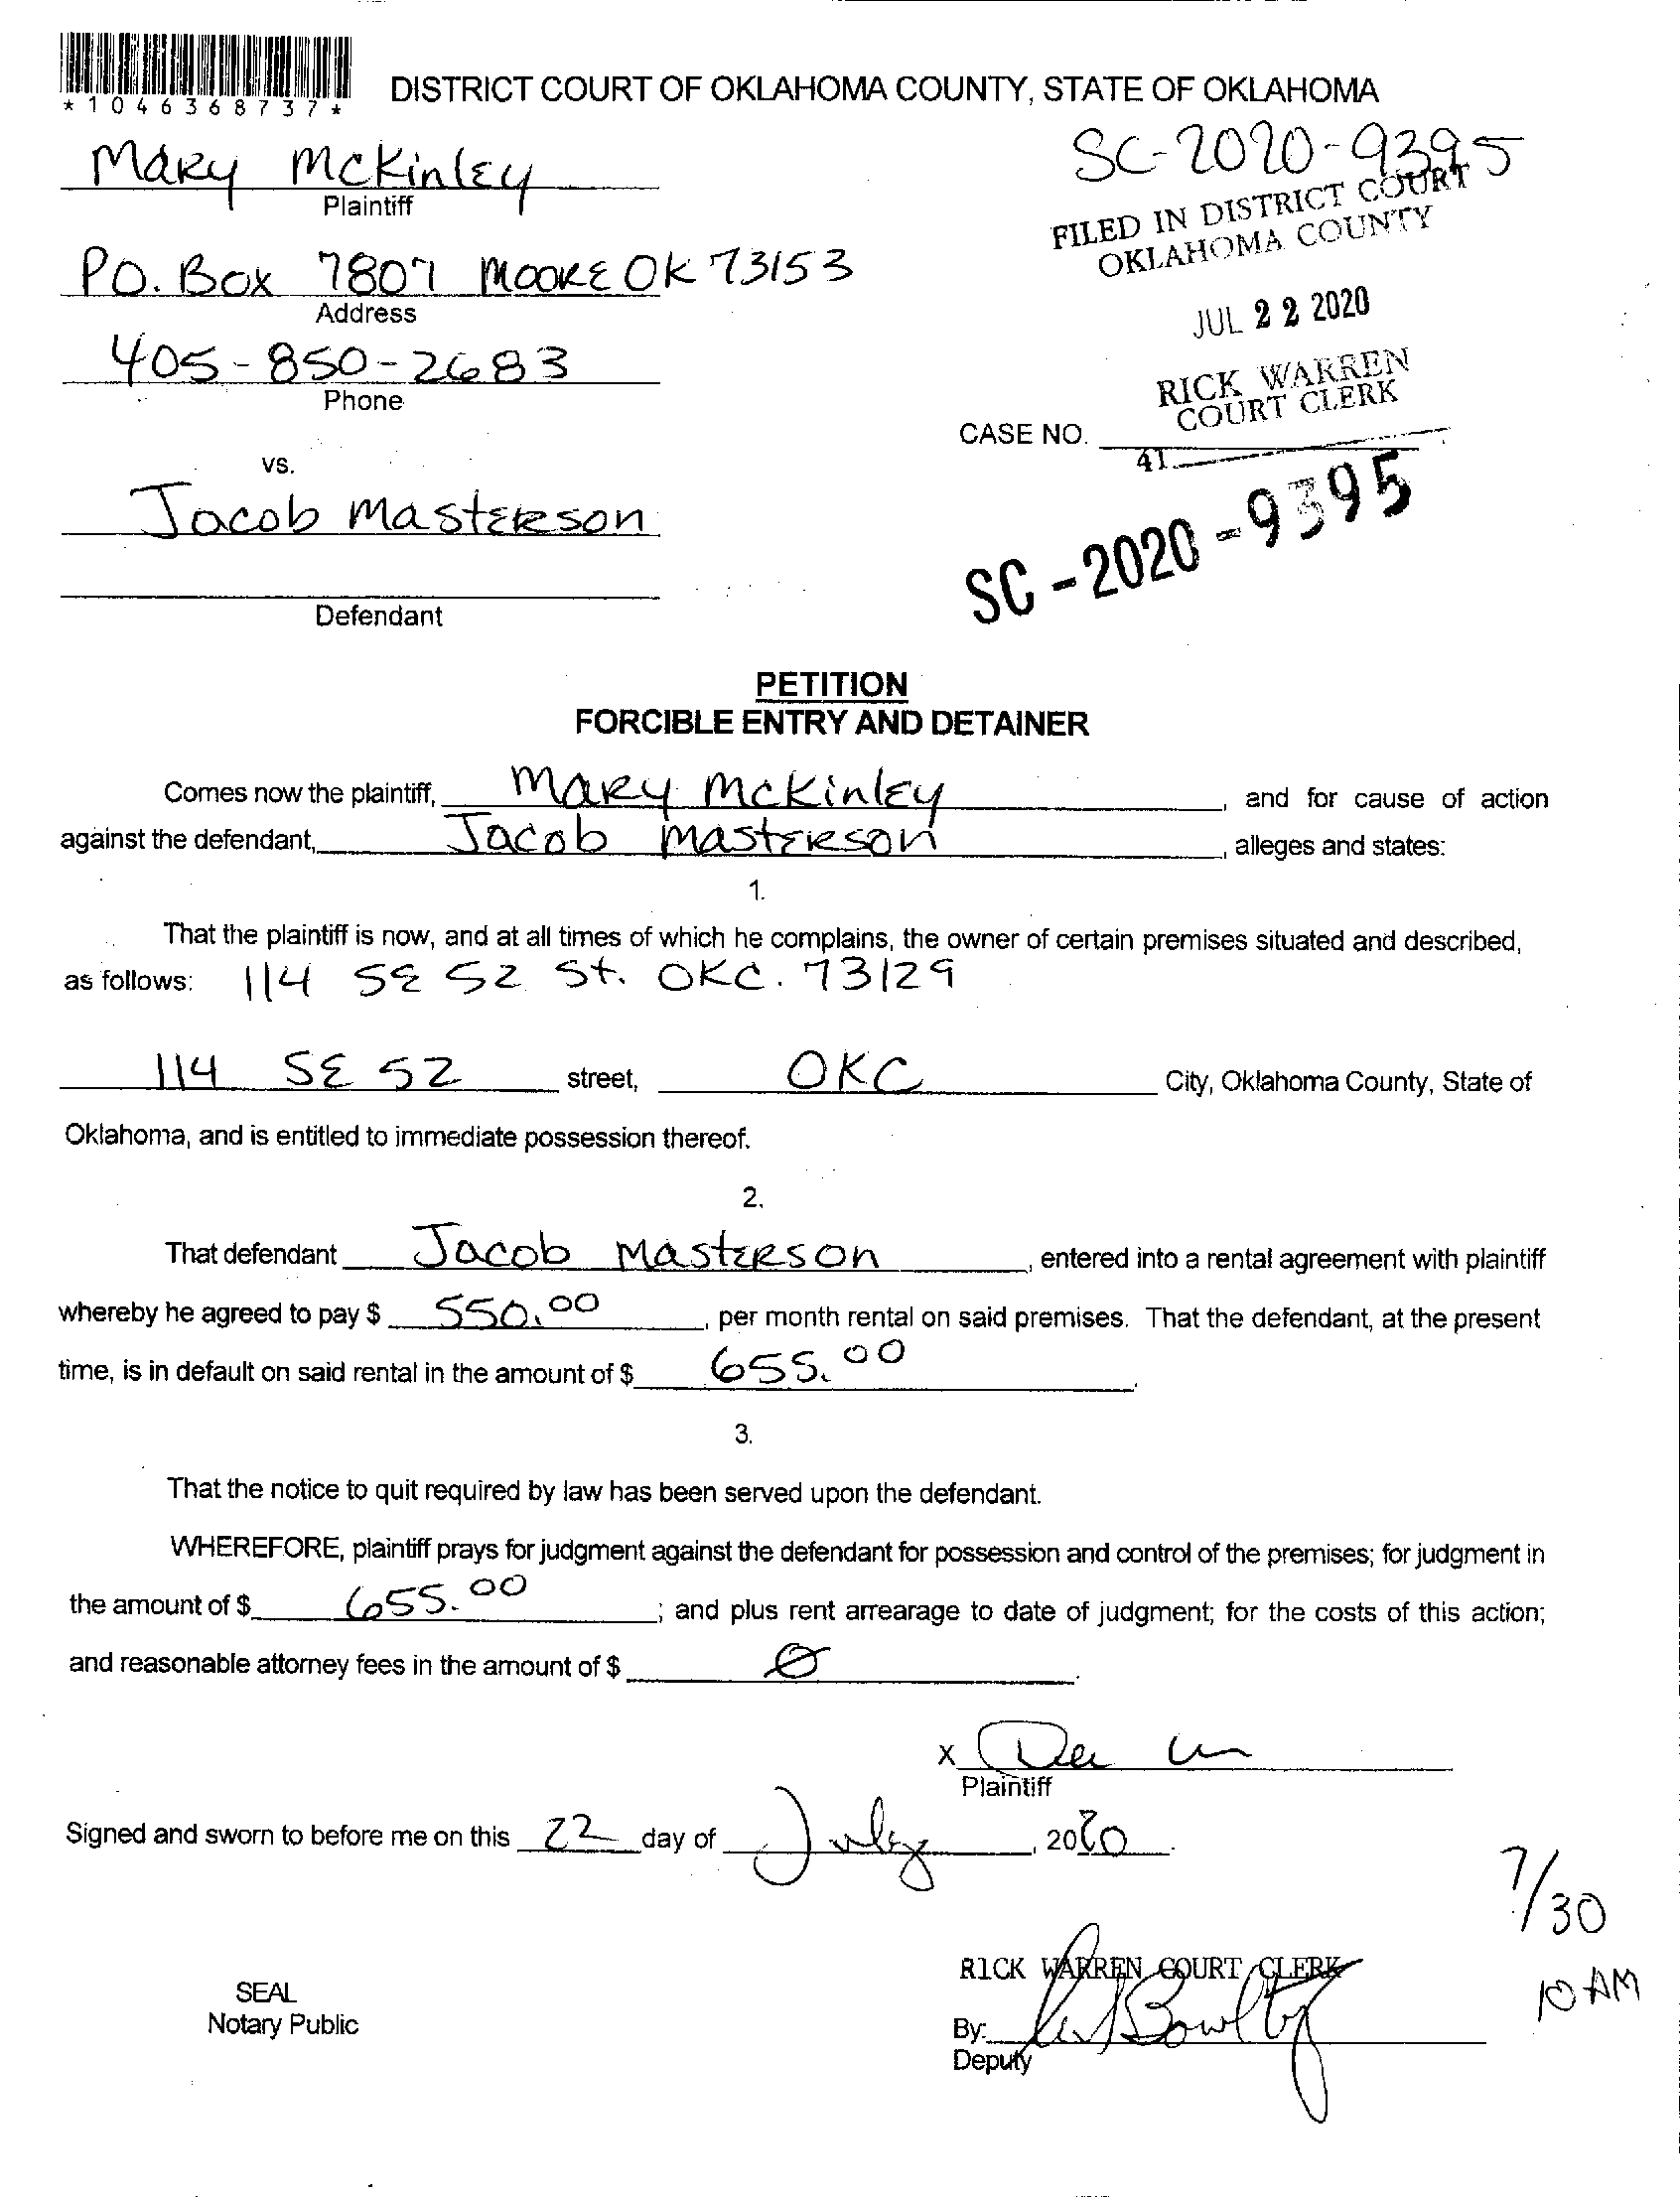 *1046368737*
DISTRICT COURT OF OKLAHOMA COUNTY, STATE OF OKLAHOMA
Mary McKinley
Plaintiff
SC-2020-9395
FILED IN DISTRICT COURT
OKLAHOMA COUNTY
P.O. Box 7807 Moore OK 73153
Address
JUL 22 2020
405-850-2683
Phone
RICK WARREN
COURT CLERK
CASE NO.
41
vs.
Jacob Masterson
SC-2020-9395
Defendant
PETITION
FORCIBLE ENTRY AND DETAINER
Comes now the plaintiff, Mary McKinley, and for cause of action
against the defendant, Jacob Masterson, alleges and states:
1.
That the plaintiff is now, and at all times of which he complains, the owner of certain premises situated and described,
as follows: 114 SE 52 St. OKC. 73129
114 SE 52 street, OKC City, Oklahoma County, State of
Oklahoma, and is entitled to immediate possession thereof.
2.
That defendant Jacob Masterson, entered into a rental agreement with plaintiff
whereby he agreed to pay $ 550.00, per month rental on said premises. That the defendant, at the present
time, is in default on said rental in the amount of $ 655.00.
3.
That the notice to quit required by law has been served upon the defendant.
WHEREFORE, plaintiff prays for judgment against the defendant for possession and control of the premises; for judgment in
the amount of $ 655.00; and plus rent arrearage to date of judgment; for the costs of this action;
and reasonable attorney fees in the amount of $ 0.
X
Plaintiff
Signed and sworn to before me on this 22 day of July, 2020.
7/30
10 AM
RICK WARREN COURT CLERK
SEAL
Notary Public
By:
Deputy